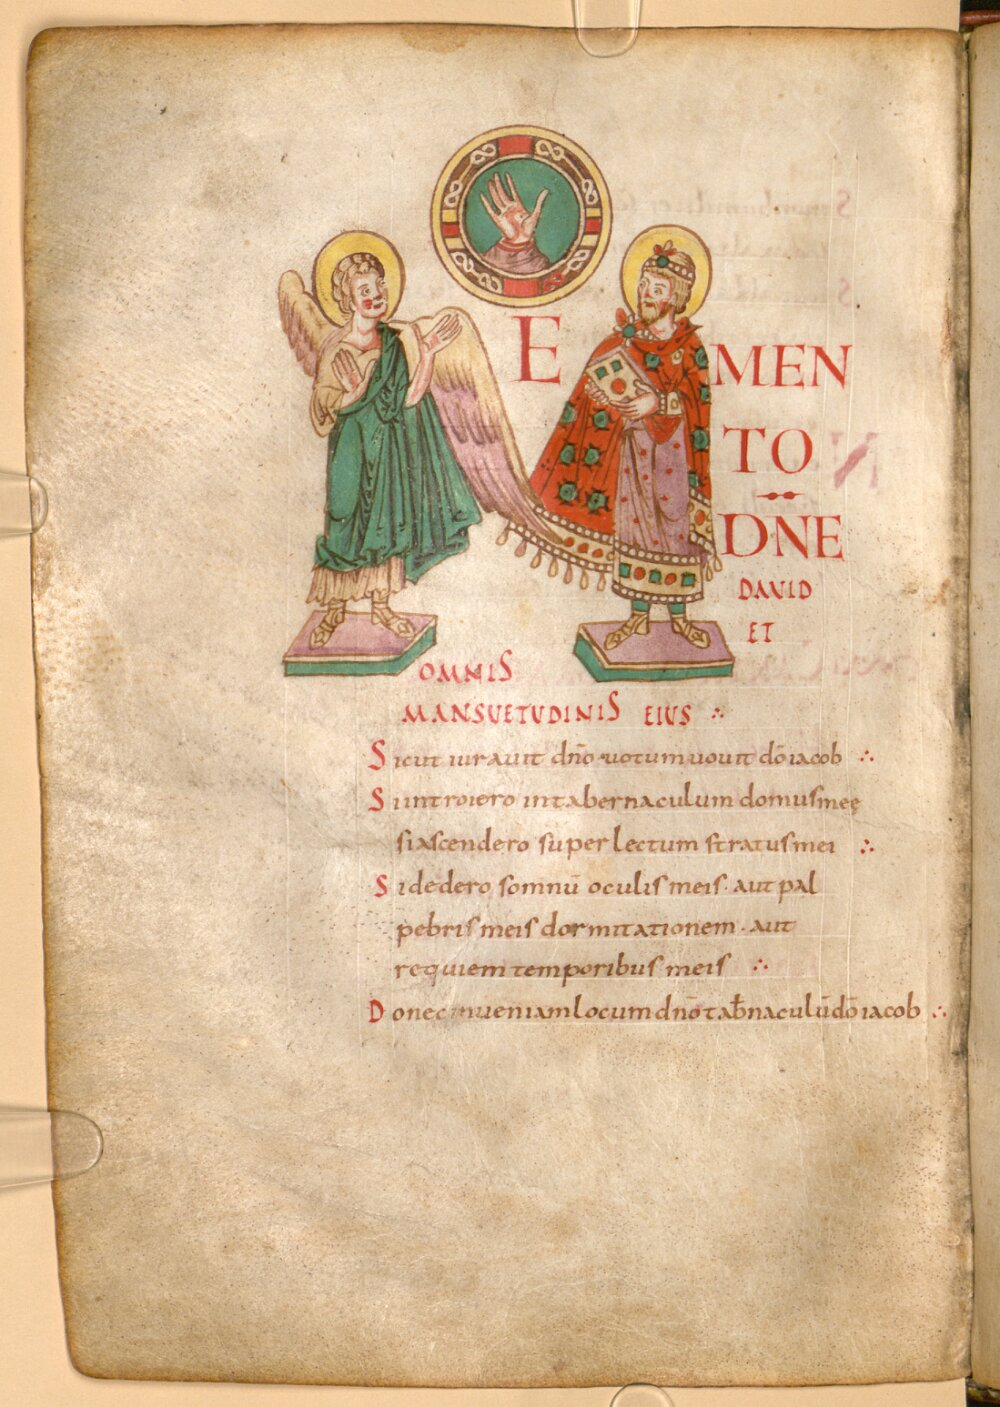 E
MEN
TO
DNE
DAVID
ET
OMNIS
MANSUETUDINIS EIUS ∴
Sicut iurauit dño · uotum uouit dō iacob ∴
Si introiero in tabernaculum domus meę
si ascendero super lectum stratus mei ∴
Si dedero somnū oculis meis · aut pal
pebris meis dormitationem · aut
requiem temporibus meis ∴
Donec inueniam locum dño tab̄naculū dō iacob ∴